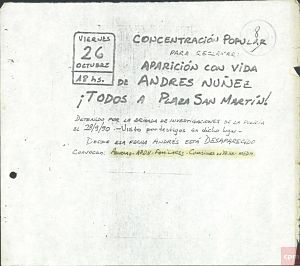 VIERNES
26
OCTUBRE
18 hs.
CONCENTRACIÓN POPULAR
PARA RECLAMAR:
APARICIÓN CON VIDA
DE ANDRES NUÑEZ
¡TODOS A PLAZA SAN MARTÍN!
DETENIDO POR LA BRIGADA DE INVESTIGACIONES DE LA PLATA
EL 28/9/90.- VISTO POR TESTIGOS EN DICHO LUGAR.-
DESDE ESA FECHA ANDRÉS ESTÁ DESAPARECIDO
CONVOCAN: APDH - FAMILIARES -